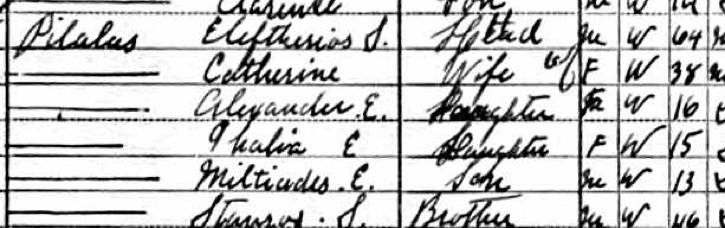 Clarence Son M W 14
Pilalas Eleftherios S. Head M W 64
Catherine Wife F W 38
Alexander E. W 16
Thalia E Daughter F W 15
Miltiades. E. Son M W 13
Stavros. S. Brother M W 46